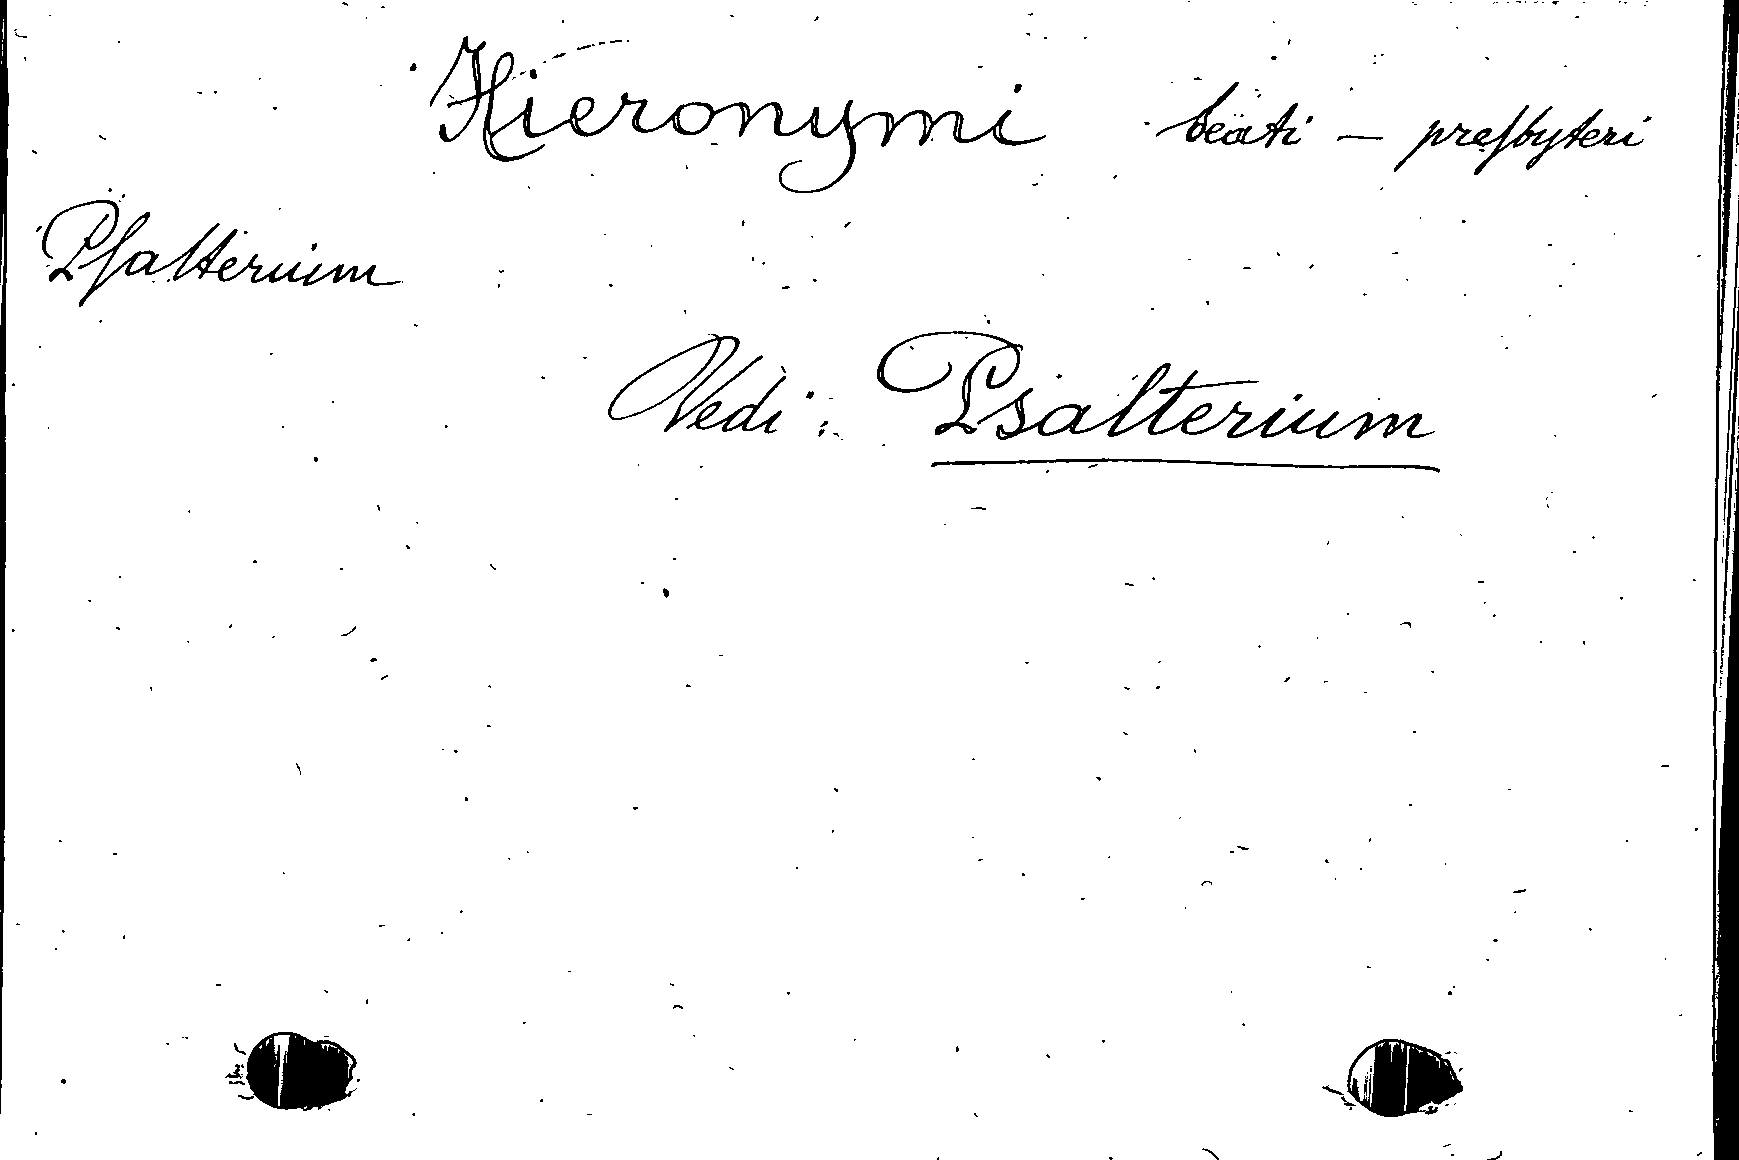 Hieronymi beati – preſbyteri
Pſalterium
Vedi: Psalterium